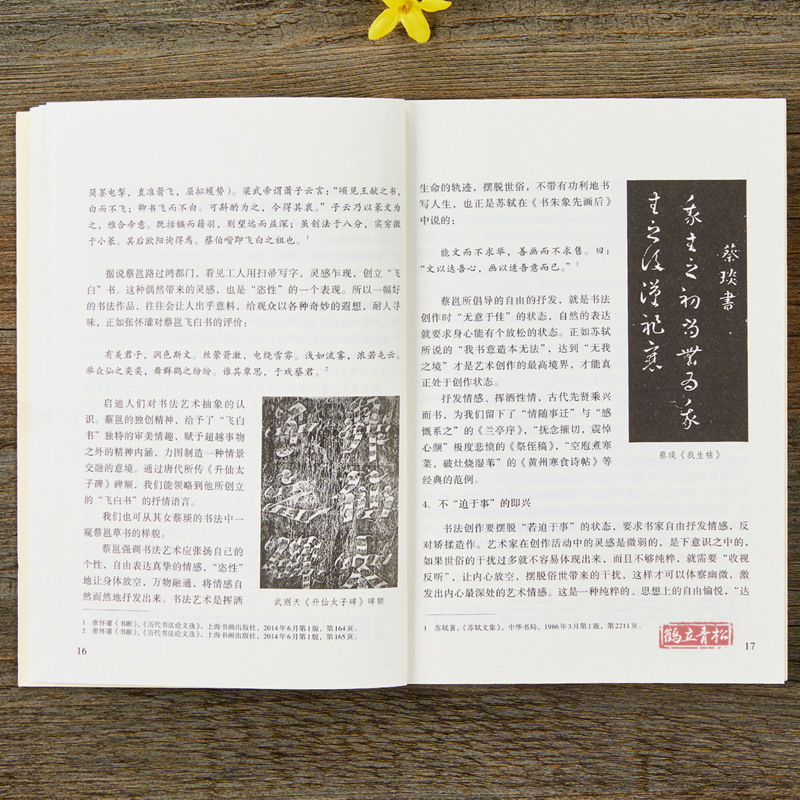 简墨电掣，直准箭飞，屈拟蠖势）。梁武帝谓萧子云言：“顷见王献之书，
白而不飞；卿书飞而不白。可斟酌为之，令得其衷。”子云乃以篆文为
之，雅合帝意。既括镞而藉羽，则望远而益深；虽创法于八分，实穷微
于小篆。其后欧阳询得焉。蔡伯喈即飞白之祖也。1
据说蔡邕路过鸿都门，看见工人用扫帚写字，灵感乍现，创立“飞
白”书。这种偶然带来的灵感，也是“恣性”的一个表现。所以一幅好
的书法作品，往往会让人出乎意料，给观众以各种奇妙的遐想，耐人寻
味，正如张怀瓘对蔡邕飞白书的评价：
有美君子，润色斯文。丝萦箭激，电绕雪雰。浅如流雾，浓若屯云。
举众仙之奕奕，舞群鹤之纷纷。谁其覃思，于戏蔡君。2
启迪人们对书法艺术抽象的认
识。蔡邕的独创精神，给予了“飞白
书”独特的审美情趣，赋予超越事物
之外的精神内涵，力图制造一种情景
交融的意境。通过唐代所传《升仙太
子碑》碑额，我们能领略到他所创立
的“飞白书”的抒情语言。
我们也可从其女蔡琰的书法中一
窥蔡邕草书的样貌。
蔡邕强调书法艺术应张扬自己的
个性，自由表达真挚的情感，“恣性”
地让身体放空，万物融通，将情感自
然而然地抒发出来。书法艺术是挥洒
武则天《升仙太子碑》碑额
1 张怀瓘《书断》，《历代书法论文选》，上海书画出版社，2014年6月第1版，第164页。
2 张怀瓘《书断》，《历代书法论文选》，上海书画出版社，2014年6月第1版，第165页。
16
生命的轨迹，摆脱世俗，不带有功利地书
写人生，也正是苏轼在《书朱象先画后》
中说的：
能文而不求举，善画而不求售。曰：
“文以达吾心，画以适吾意而已。”1
蔡邕所倡导的自由的抒发，就是书法
创作时“无意于佳”的状态，自然的表达
就要求身心能有个放松的状态。正如苏轼
所说的“我书意造本无法”，达到“无我
之境”才是艺术创作的最高境界，才能真
正处于创作状态。
抒发情感、挥洒性情，古代先贤乘兴
而书，为我们留下了“情随事迁”与“感
慨系之”的《兰亭序》，“抚念摧切，震悼
心颜”极度悲愤的《祭侄稿》，“空庖煮寒
菜，破灶烧湿苇”的《黄州寒食诗帖》等
经典的范例。
蔡琰書
我生之初尚無為我
生之後漢祚衰
蔡琰《我生帖》
4. 不“迫于事”的即兴
书法创作要摆脱“若迫于事”的状态，要求书家自由抒发情感，反
对矫揉造作。艺术家在创作活动中的灵感是微弱的，是下意识之中的，
如果世俗的干扰过多就不容易体现出来，而且不够纯粹，就需要“收视
反听”，让内心放空，摆脱俗世带来的干扰，这样才可以体察幽微，激
发出内心最深处的艺术情感。这是一种纯粹的、思想上的自由愉悦，“达
1 苏轼著，《苏轼文集》，中华书局，1986年3月第1版，第2211页。
鹤立青松
17